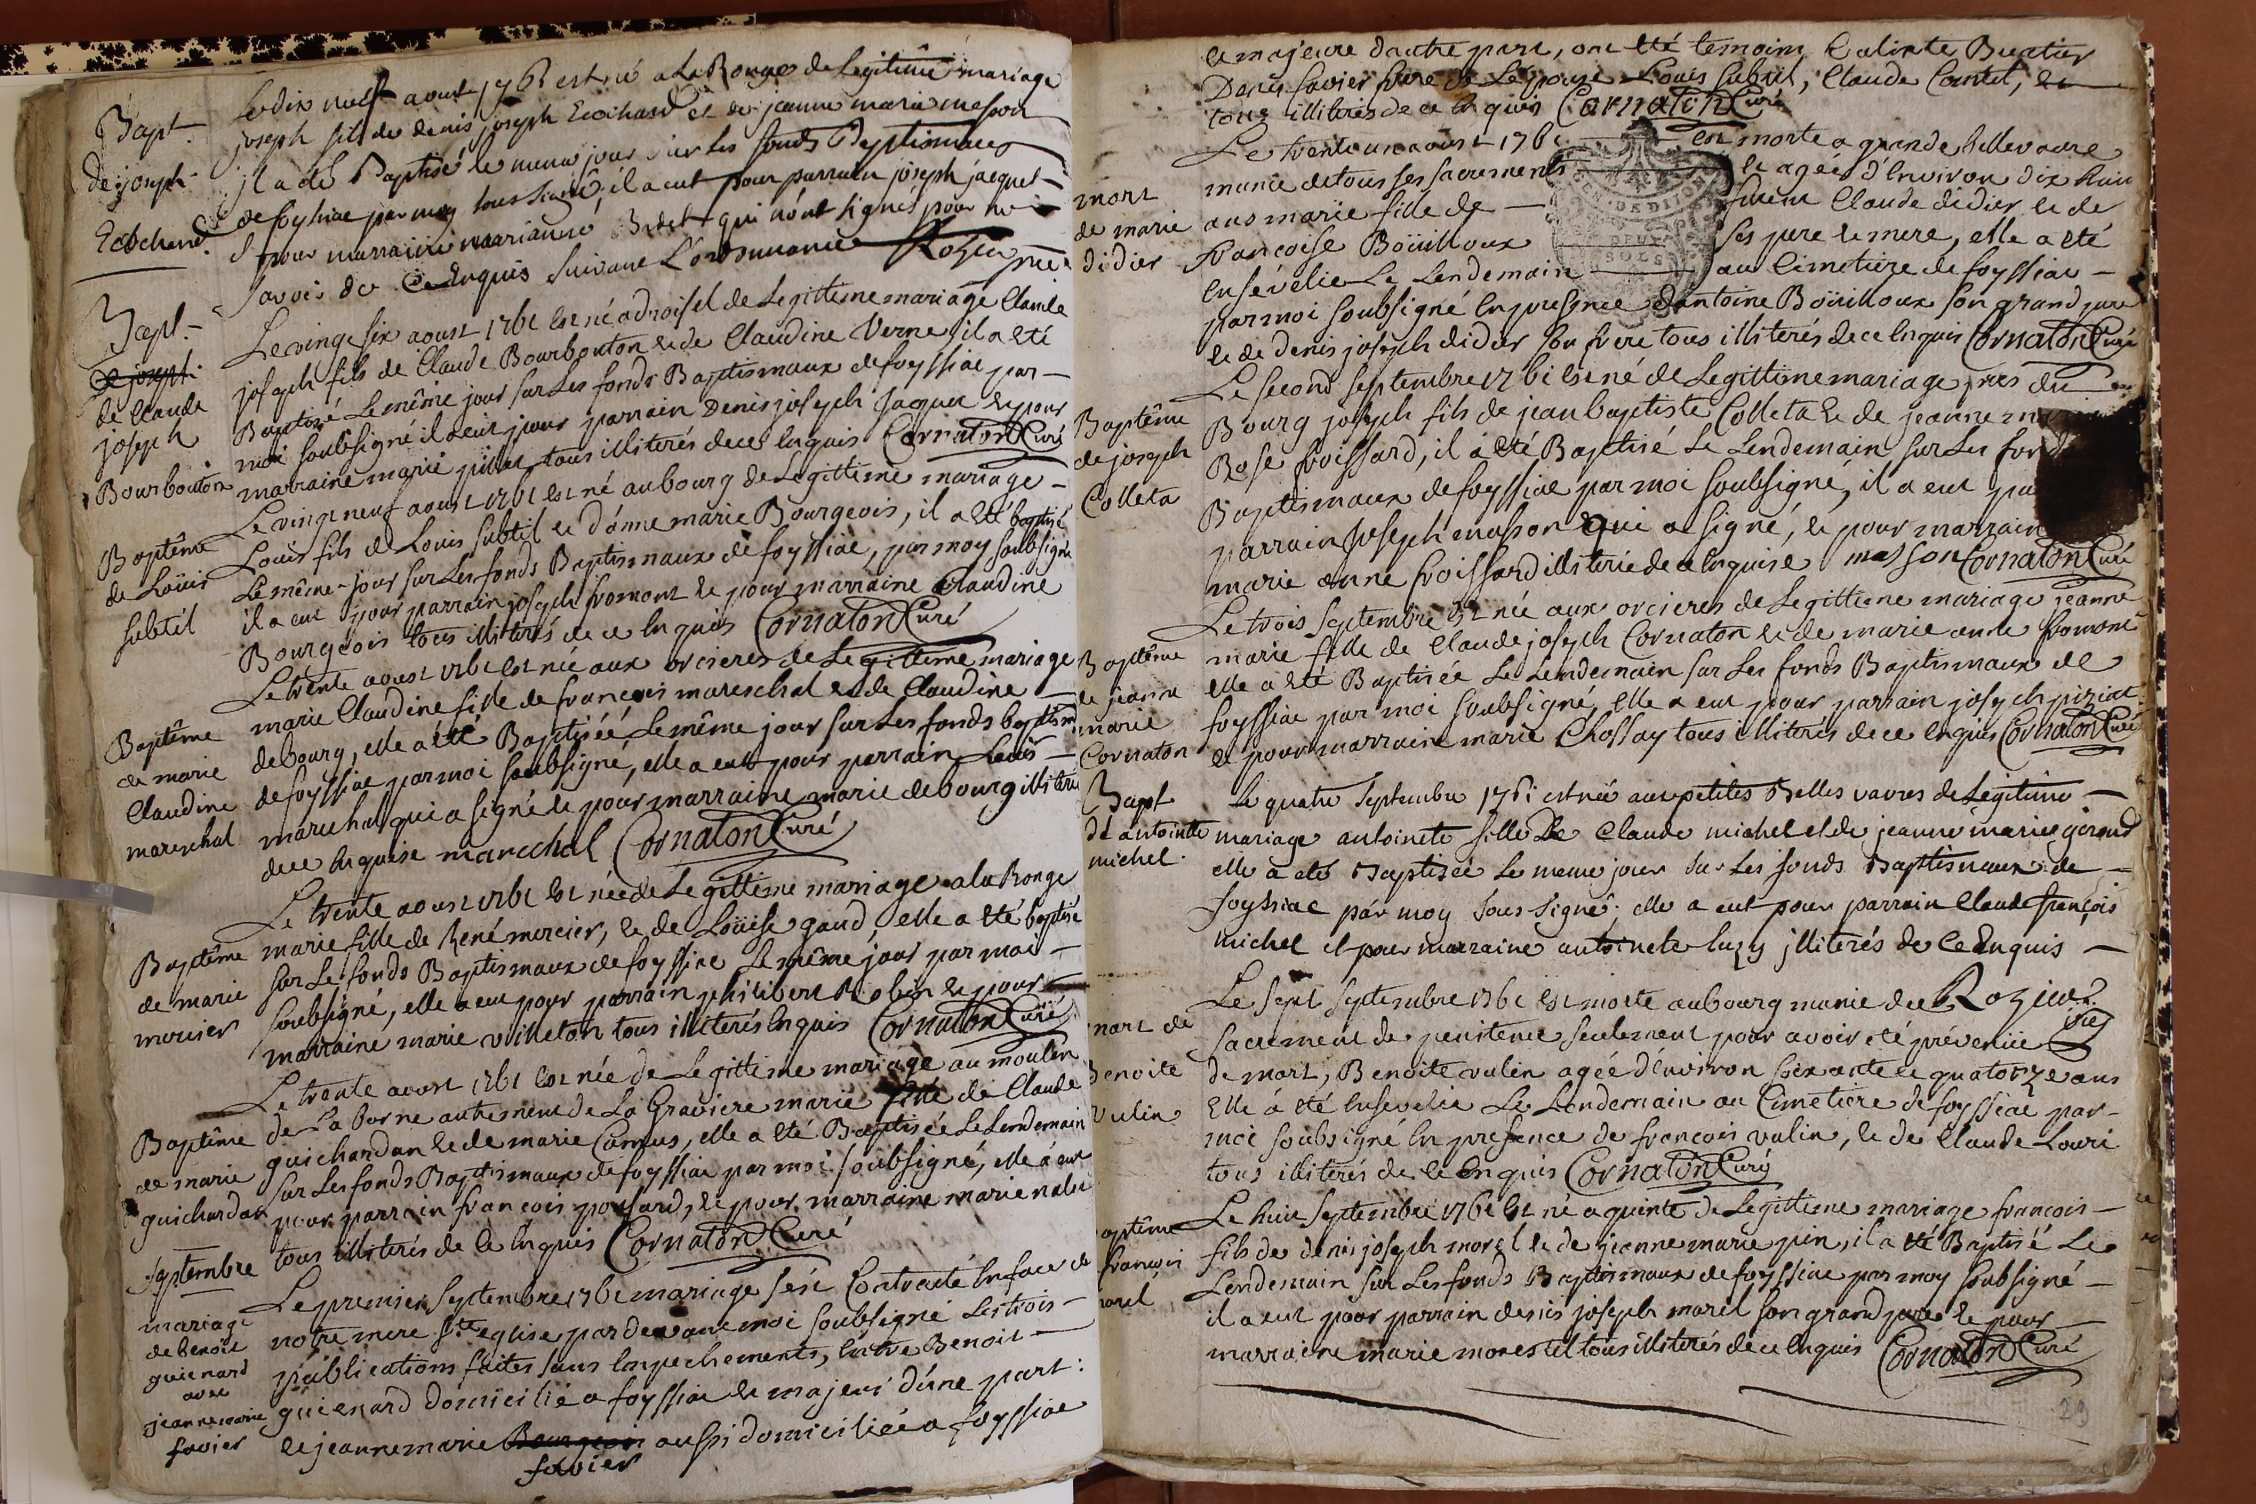 Bapt
de joseph
Ecochard
Le dix neuf aout 1761 est né a La Ronge de Legitime mariage
joseph fils de denis joseph Ecochard et de jeanne marie masson
il a été Baptisé le meme jour sur les fonds Baptismaux
de foyssiac par moy sous signé, il a eut pour parrain joseph jacquet
et pour marraine marianne Bidet qui n'ont signés pour ne
savoir de ce Enquis suivant L'ordonnance Rozier
Bapt
de joseph
de Claude
joseph
Bourbouton
Le vingt six aoust 1761 est né a droisel de Legittime mariage Claude
joseph fils de Claude Bourbouton et de Claudine Verne il a eté
Baptisé Le même jour sur Les fonds Baptismaux de foyssiac par
moi soubsigné il a eut pour parrain Denis joseph Jaquet et pour
marraine marie pillet, tous illiterés de ce Enquis Cornaton Curé
Baptême
de Loüis
subtil
Le vingt neuf aoust 1761 est né au bourg de Legittime mariage
Loüis fils de Louis subtil et d'anne marie Bourgeois, il a eté baptisé
Le même jour sur Les fonds Baptismaux de foyssiac, par moy soubsigné
il a eut pour parrain joseph fromont et pour marraine Claudine
Bourgeois tous illiterés de ce Enquis Cornaton Curé
Baptême
de marie
Claudine
mareschal
Le trente aoust 1761 est née aux orcieres de Legittime mariage
marie Claudine fille de françois mareschal et de Claudine
debourg, elle a été Baptisée Le même jour sur Les fonds baptism
de foyssiac par moi soubsigné, elle a eut pour parrain Louis
marechal qui a signé et pour marraine marie debourg illiteré
de ce Enquise marechal Cornaton Curé
Baptême
de marie
mercier
Le trente aoust 1761 est née de Legittime mariage a la Ronge
marie fille de René mercier, et de Loüise gaud, elle a eté baptisé
sur Les fonds Baptismaux de foyssiac Le même jour par moi
soubsigné, elle a eut pour parrain philibert Robin et pour
marraine marie villeton tous illiterés Enquis Cornaton Curé
Baptême
de marie
guichardan
Le trente aoust 1761 est née de Legittime mariage au moulin
de La Borne autrement de La Graviere marie fille de Claude
guichardan et de marie Camus, elle a eté Baptisée Le Lendemain
sur Les fonds Baptismaux de foyssiac par moi soubsigné, elle a eut
pour parrain françois ponsard, et pour marraine marie
tous illiterés de ce Enquis Cornaton Curé
septembre
mariage
de benoit
guienard
avec
jeanne marie
favier
Le premier septembre 1761 mariage s'est Contracté En face de
notre mere ste eglise par devant moi soubsigné Les trois
publications faites sans Empechements, Entre Benoit
guienard domicilié a foyssiac et majeur d'une part
et jeanne marie Bourgeois aussi domiciliée a foyssiac
favier
et majeure d'autre part, ont eté temoins Calixte Buatier
Denis favier frere de L'epouse Louis subtil, Claude Cantet, et
tous illiterés de ce Enquis Cornaton Curé
mort
de marie
didier
Le trente un aoust 1761 est morte a grande bellevavre
munie de tous ses sacrements et agée d'Environ dix huit
ans marie fille de furent Claude didier et de
francoise Boüilloux ses pere et mere, elle a eté
Ensévelie Le Lendemain au Cimetiere de foyssiac
par moi soubsigné En presence d'antoine Boüilloux son grand pere
et de denis joseph didier son frere tous illiterés de ce Enquis Cornaton Curé
DEUX
SOLS
Baptême
de joseph
Colleta
Le second septembre 1761 est né de Legittime mariage pres du
Bourg joseph fils de jean baptiste Colleta et de jeanne
Rose froissard, il a eté Baptisé Le Lendemain sur Les
Baptismaux de foyssiac par moi soubsigné, il a eut
parrain joseph masson qui a signé, et pour
marie anne froissard illiterée de ce Enquise masson Cornaton Curé
Baptême
de jeanne
marie
Cornaton
Le trois septembre est née aux orcieres de Legittime mariage jeanne
marie fille de Claude joseph Cornaton et de marie anne fromont
elle a eté Baptisée Le Lendemain sur Les fonds Baptismaux de
foyssiac par moi soubsigné, elle a eut pour parrain joseph piziat
et pour marraine marie Chossay tous illiterés de ce Enquis Cornaton Curé
Bapt
de antoinette
michel
Le quatre septembre 1761 est née aux petites Belles vavres de Legitime
mariage antoinette fille de Claude michel et de jeanne marie giroud
elle a eté Baptisée Le meme jour sur Les fonds Baptismaux de
foyssiac par moy sous signé, elle a eut pour parrain Claude françois
michel et pour marraine antoinete luzy jlliterés de ce Enquis
Rozier
mort de
Benoite
vulin
Le sept septembre 1761 est morte au bourg munie du
sacrement de penitence seulement pour avoir eté prévenüe
de mort, Benoite vulin agée d'environ soixante et quatorze ans
elle a eté Ensevelie Le Lendemain au Cimetiere de foyssiac par
moi soubsigné En presence de françois vulin, et de Claude Louri
tous illiterés de ce Enquis Cornaton Curé
aptême
françois
morel
Le huit septembre 1761 est né a quinte de Legittime mariage françois
fils de denis joseph morel et de jeanne marie pin, il a eté Baptisé Le
Lendemain sur Les fonds Baptismaux de foyssiac par moy soubsigné
il a eut pour parrain denis joseph morel son grand pere et pour
marraine marie morestel tous illiterés de ce Enquis Cornaton Curé
29